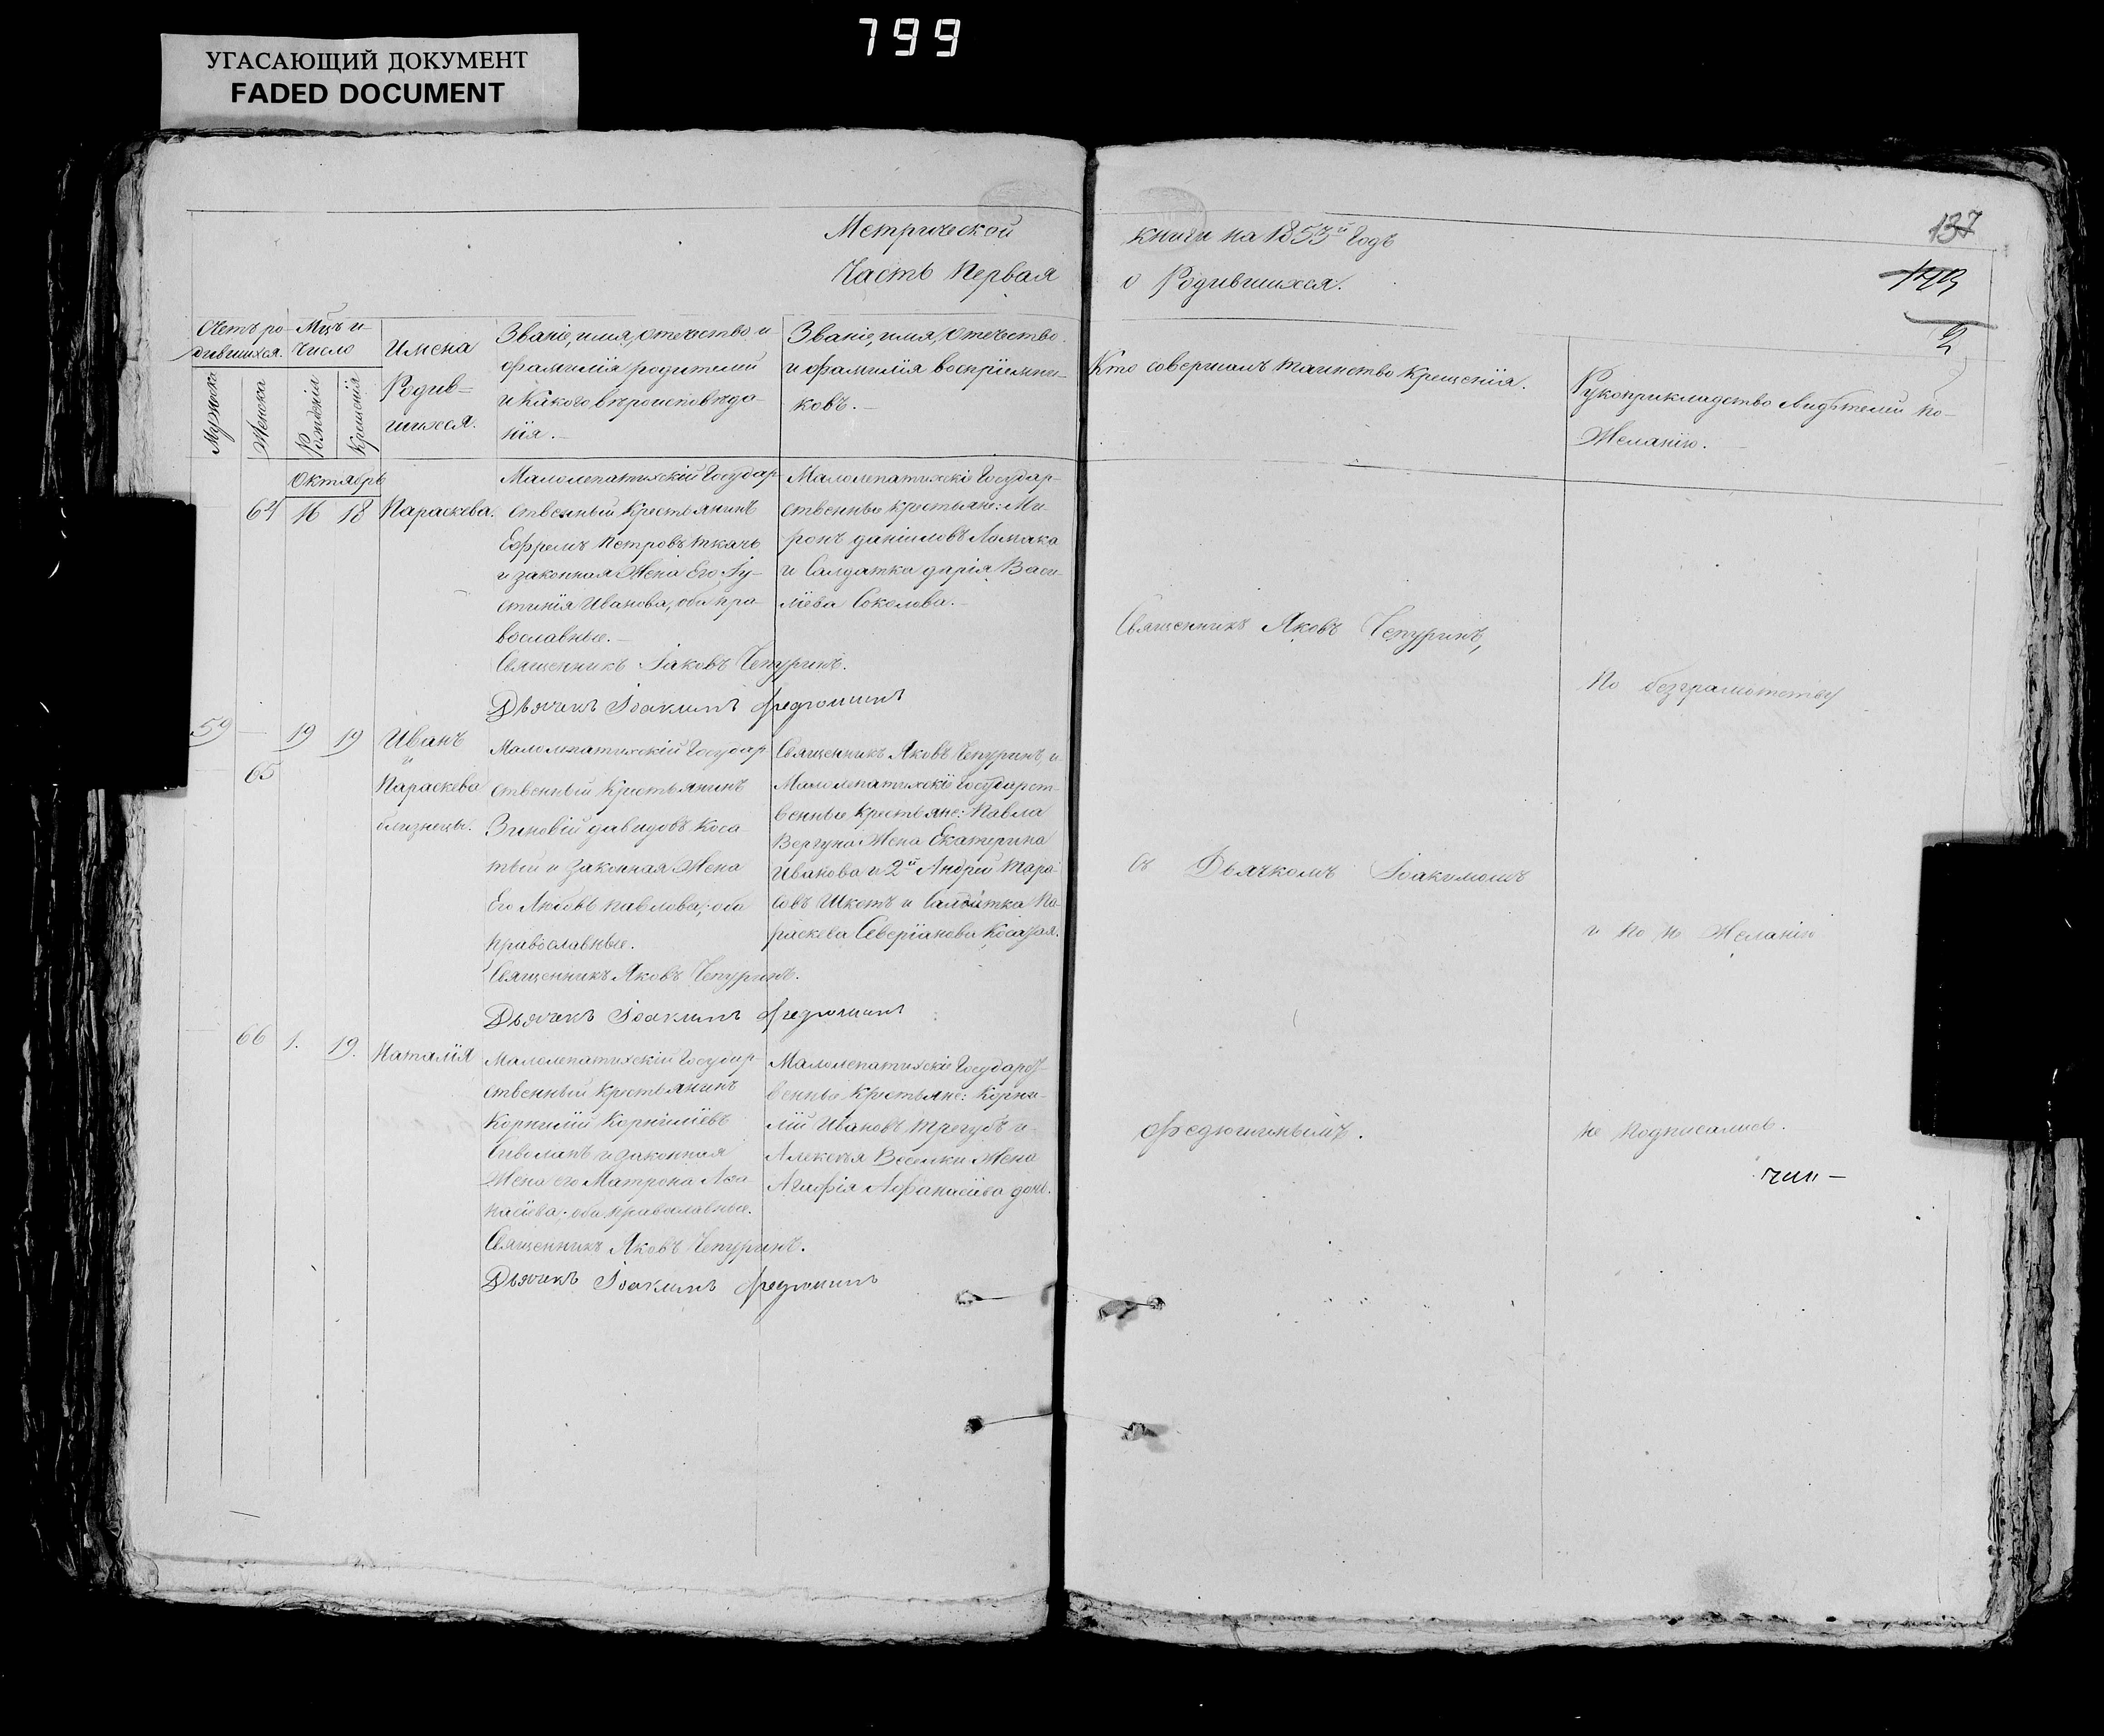 799
УГАСАЮЩИЙ ДОКУМЕНТ
FADED DOCUMENT
Метрической
Часть Первая
книги на 1853й Годъ
о Родившихся.
137
Счетъ ро
дившихся.
Мцъ и
Число
Мужеска
Женска
Рожденія
Крещенія
Имена
Родив-
шихся.
Званіе, имя, отечество и
фамилія родителей
и Какого вѣроисповѣда-
нія.-
Званіе, имя, Отечество
и фамилія воспріемни-
ковъ.-
Кто совершалъ таинство Крещенія.
Рукоприкладство свидѣтелей по-
Желанію.
Октябрь
64 16 18 Параскева.
Малолепатихскій Государ-
ственный Крестьянинъ
Ефремъ Петровъ Ткачь
и законная Жена Его Іу-
стинія Иванова, оба пра-
вославные.-
Священникъ Іаковъ Чепуринъ.
Дьячекъ Іоакимъ Федюшинъ
Малолепатихскіе Государ-
ственные крестьяне: Ми-
ронъ даніиловъ Ломака
и Салдатка дарія Васи-
ліева Соколова.-
59 — 19 19 Иванъ
и
65
Параскева
близнецы.
Малолепатихскій Государ
ственный Крестьянинъ
Зиновій давидовъ Коса
тый и Законная Жена
Его Любовь Павлова; оба
православные.
Священникъ Яковъ Чепуринъ.
Дьячекъ Іоакимъ Федюшинъ
Священникъ Яковъ Чепуринъ, и
Малолепатихскіе Государст-
венные Крестьяне: Павла
Вергуна Жена Екатерина
Иванова и 2й Андрей Тара-
совъ Шкетъ и Салдатка Па-
раскева Северіанова Косатая.
66 1. 19. Наталія
Малолепатихскій Государ-
ственный Крестьянинъ
Корнилій Корниліевъ
Сиволапъ и законная
Жена его Матрона Афа
насіева; оба православные.
Священникъ Яковъ Чепуринъ.
Дьячекъ Іоакимъ Федюшинъ
Малолепатихскіе Государст-
венные Крестьяне: Корни-
лій Ивановъ Трегубъ и
Алексѣя Веселки Жена
Агафія Афанасіева дочь.
Священникъ Яковъ Чепуринъ,
съ Дьячкомъ Іоакимомъ
Федюшинымъ.
По безграмотству
и по не Желанію
не подписались.